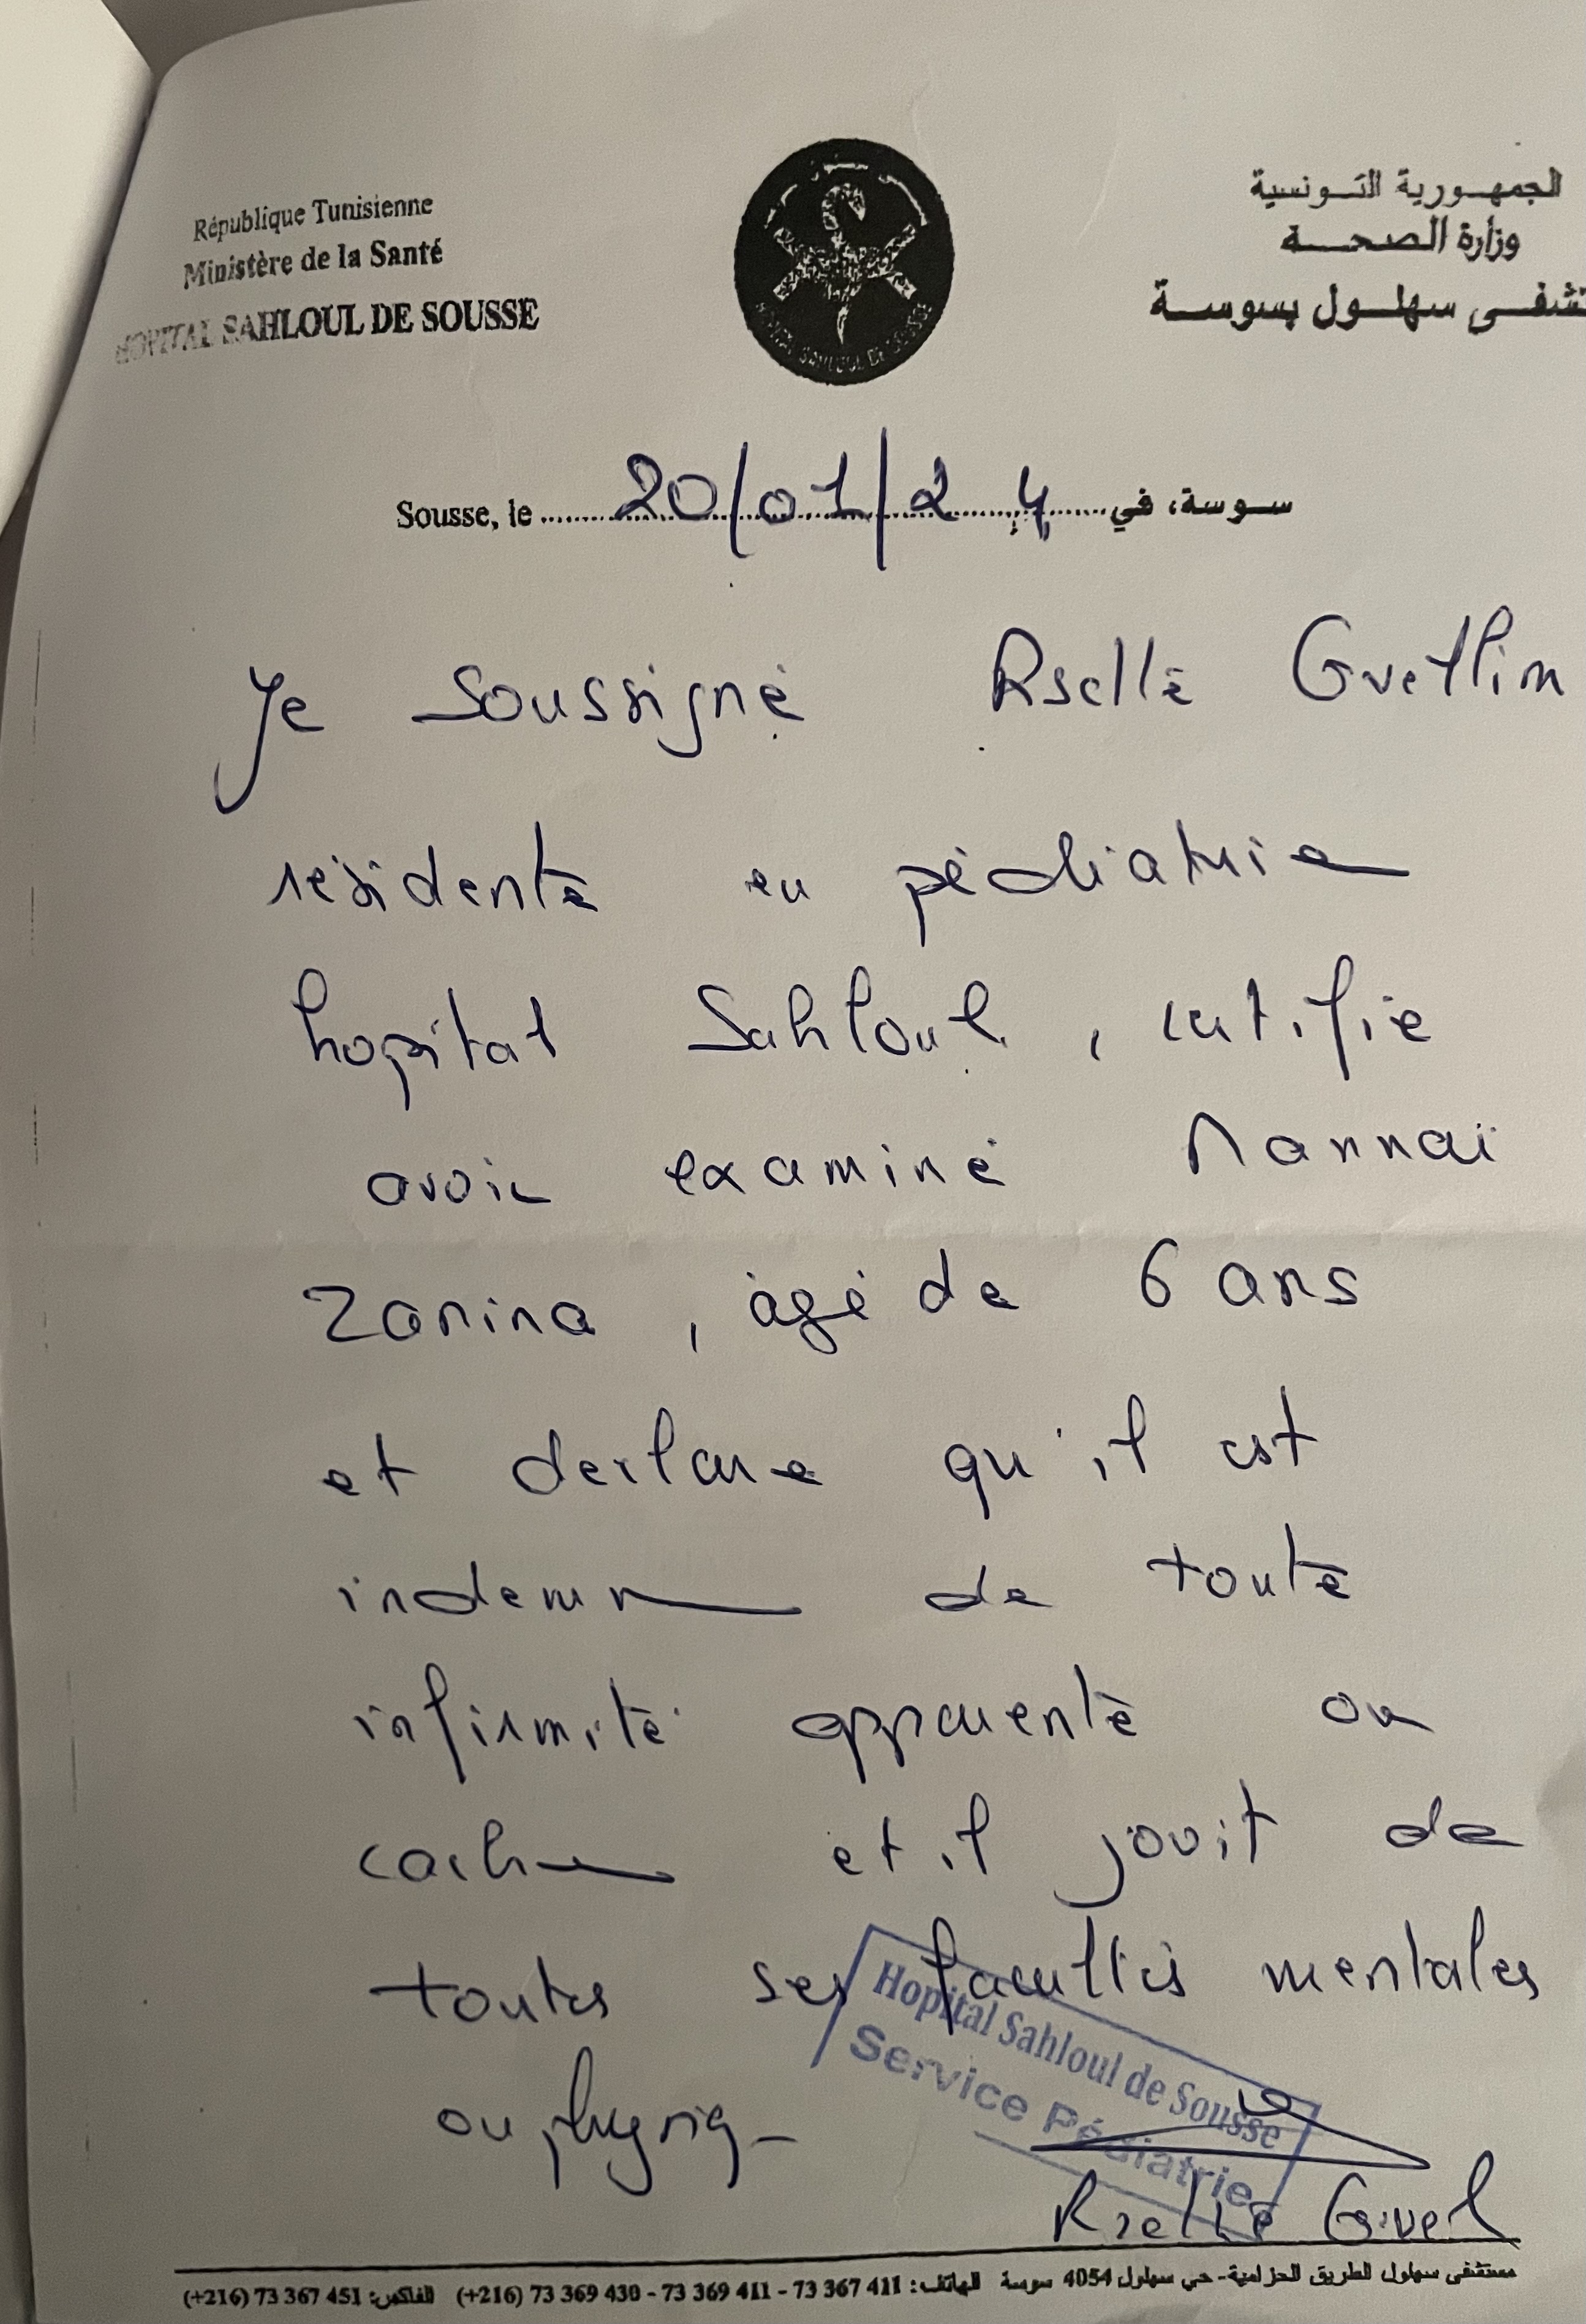 République Tunisienne
Ministère de la Santé
HOPITAL SAHLOUL DE SOUSSE
الجمهورية التونسية
وزارة الصحة
تشفى سهلول بسوسة
HOPITAL SAHLOUL DE SOUSSE
Sousse, le 20/01/24 سوسة، في
Je soussigné
résidente en pédiatrie
hopital Sahloul, certifie
avoir examiné Mannai
Zanina, agé de 6 ans
et declare qu'il est
indemne de toute
infirmité apparente ou
cachee et il jouit de
toutes ses facultés mentales
ou physiq
Hopital Sahloul de Sousse
Service Pédiatrie
مستشفى سهلول الطريق الحزامية - حي سهلول 4054 سوسة الهاتف: 73 367 411 - 73 369 411 - 73 369 430 (+216) الفاكس: 73 367 451 (+216)